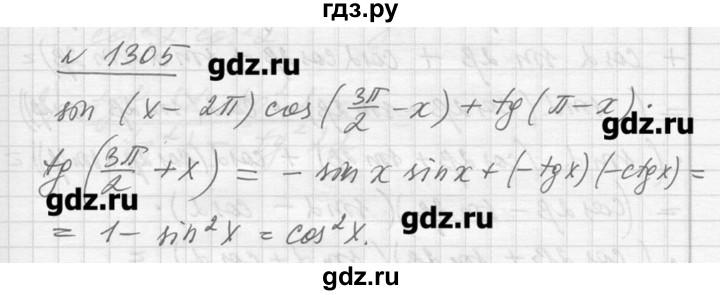 гдз.ру
№ 1305
gdz.ru
sin (x − 2π) cos (3π/2 − x) + tg (π − x) ·
gdz.ru
tg (3π/2 + x) = − sin x sin x + (−tgx)(−ctgx) =
gdz.ru
= 1 − sin²x = cos²x.
gdz.ru
gdz.ru